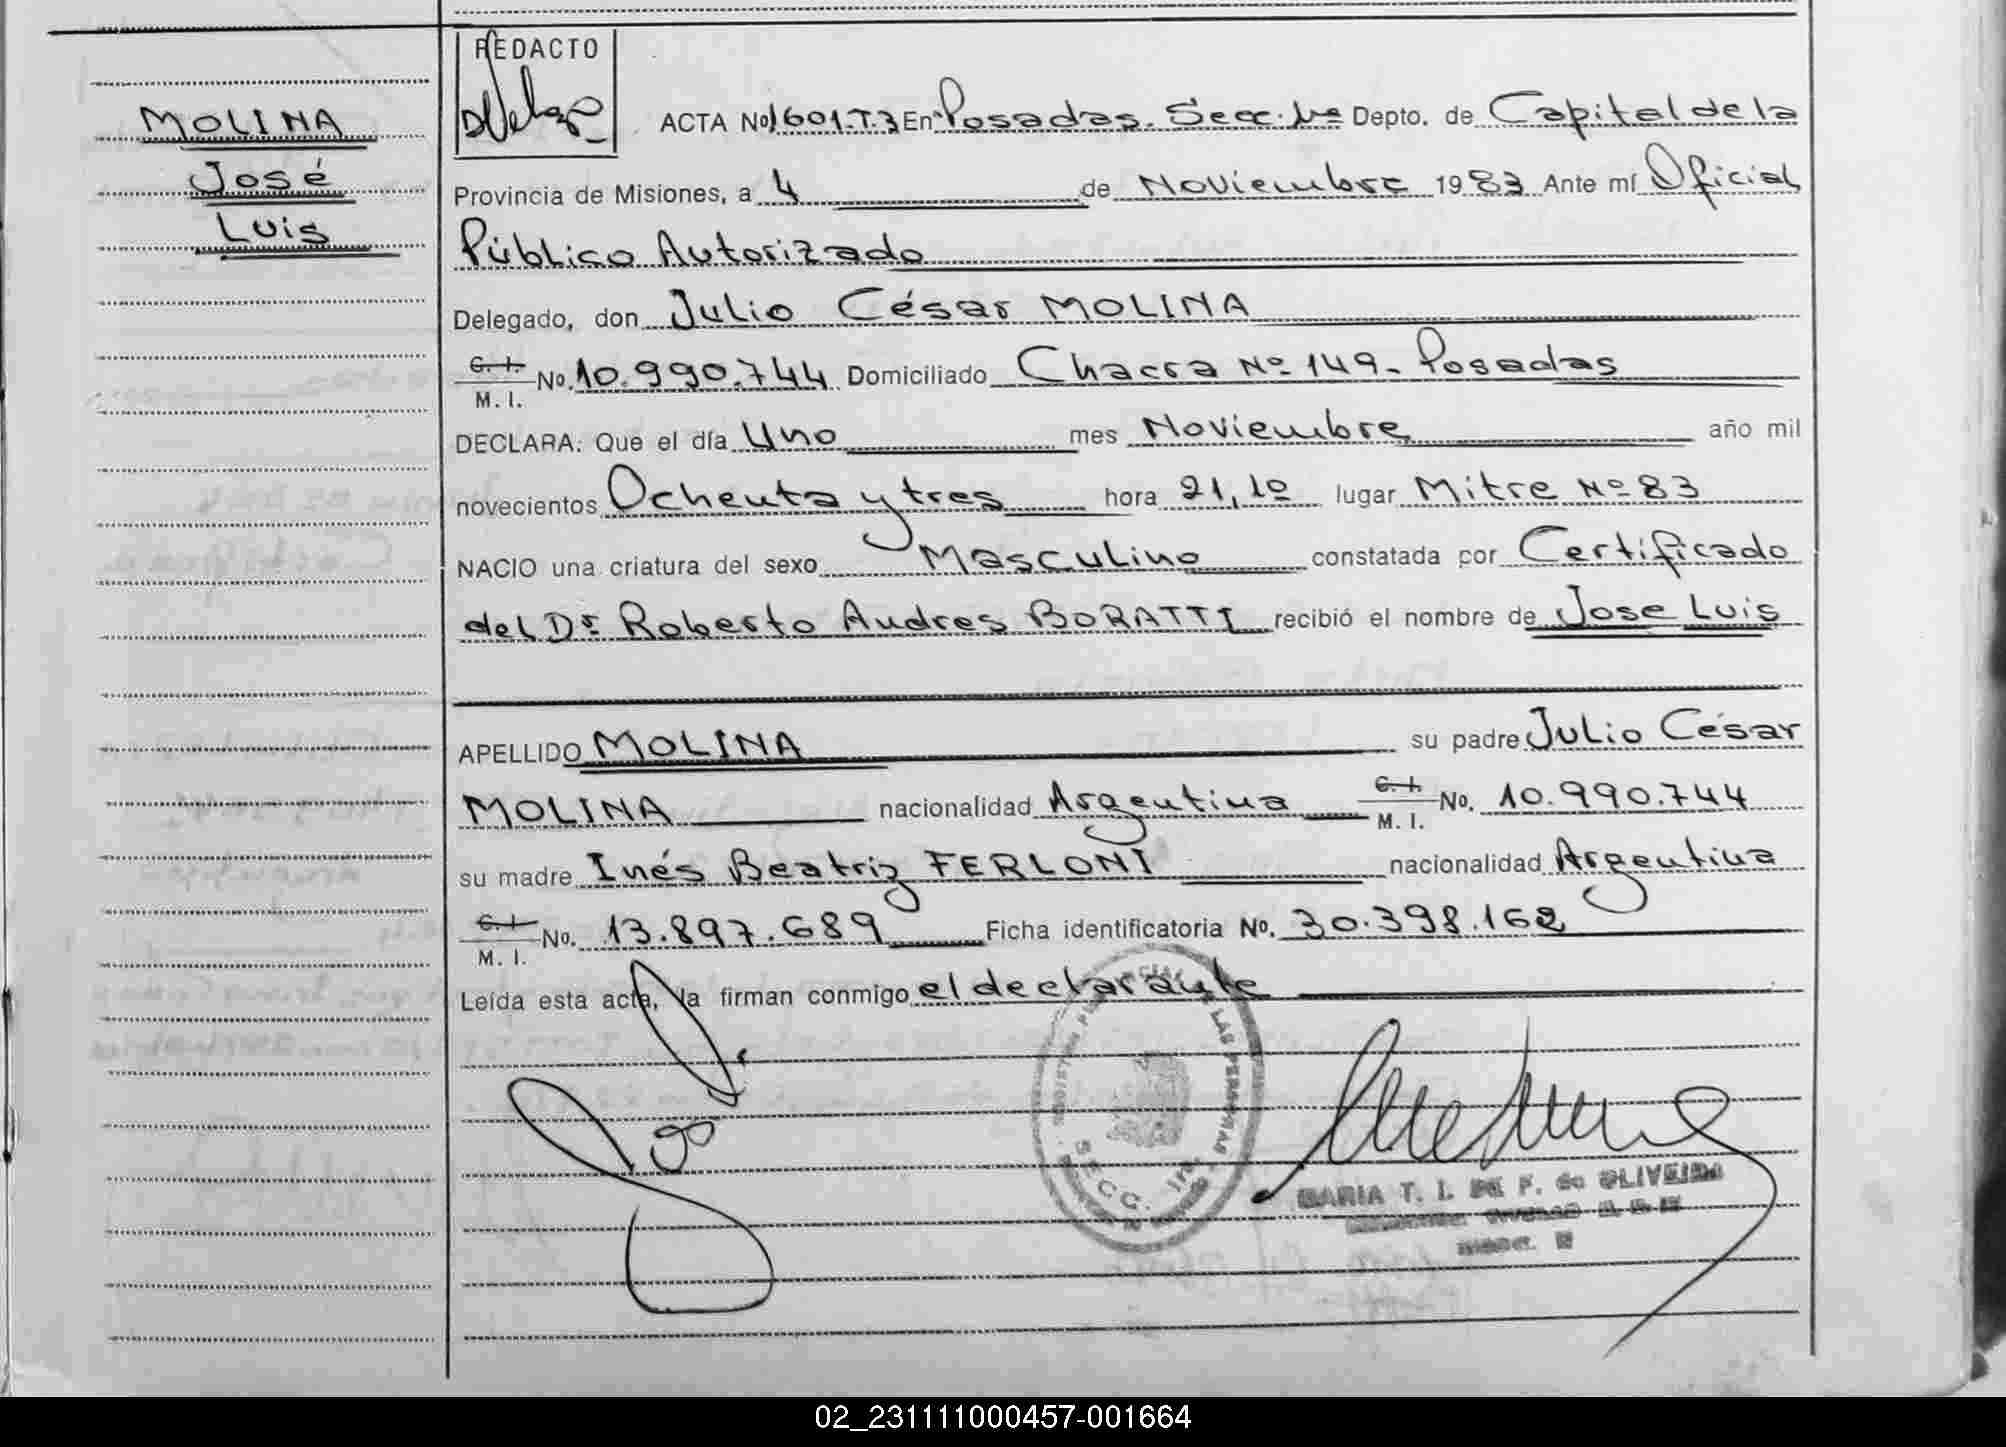 MOLINA
José
Luis
REDACTO
ACTA No 1601.T.3 En Posadas. Secc. 1ra Depto. de Capital de la
Provincia de Misiones, a 4 de Noviembre 1983 Ante mí Oficial
Público Autorizado
Delegado, don Julio César MOLINA
C. I. M. I. No. 10.990.744 Domiciliado Chacra Nº 149. Posadas
DECLARA: Que el día Uno mes Noviembre año mil
novecientos Ochenta y tres hora 21,10 lugar Mitre Nº 83
NACIO una criatura del sexo Masculino constatada por Certificado
del Dr. Roberto Andres BORATTI recibió el nombre de Jose Luis
APELLIDO MOLINA su padre Julio César
MOLINA nacionalidad Argentina C. I. M. I. No. 10.990.744
su madre Inés Beatriz FERLONI nacionalidad Argentina
C. I. M. I. No. 13.897.689 Ficha identificatoria No. 30.398.162
Leída esta acta, la firman conmigo el declarante
LAS PERSONAS
SECC. 1ra
MARIA T. I. DE F. de OLIVEIRA
02_231111000457-001664